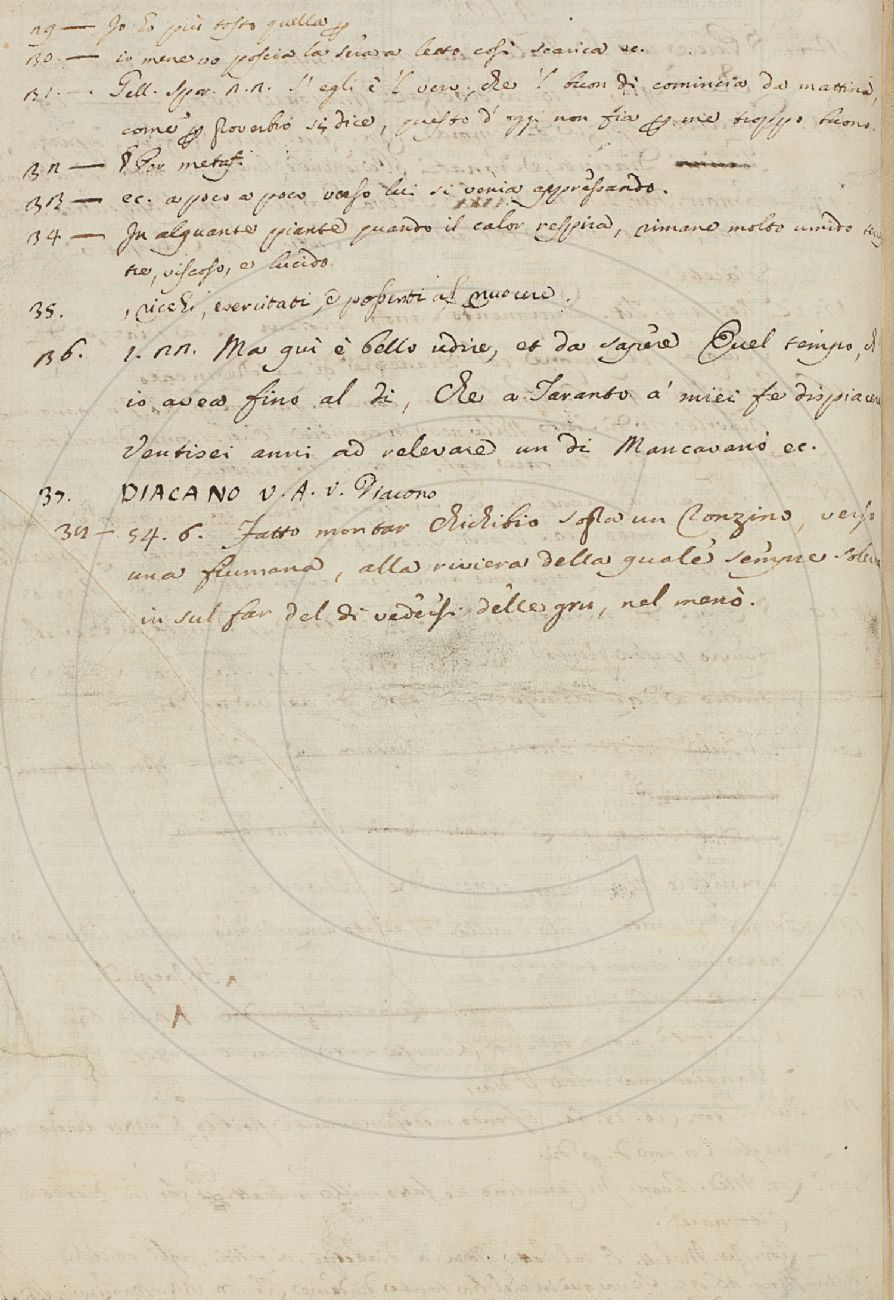 29 — Io ho più tosto quella
30. — io mene vo poscia la sera a letto così scarica ec.
31. — Gell. Spor. 2.2. S' egli è 'l vero, che 'l buon dì comincia da mattina,
come per proverbio si dice, questo d' oggi non fia per me troppo buono.
32 — § Per metaf.
33 — ec. a poco a poco verso lui si venia appressando.
34 — In alquante piante quando il calor respira, rimane molto umido
tre, viscoso, e lucido.
35. , ricchi, esercitati, e possenti al nuocere.
36. 1. 22. Ma quì è bello udire, et da sapere Quel tempo, ch
io avea fino al dì, che a Taranto a' miei fe dispiacere
Ventisei anni ad relevare un dì Mancavano ec.
37. DIACANO V. A. v. Diacono
38 — 54. 6. Fatto montar Chichibio sopra un Ronzino, verso
una fiumana, alla riviera della quale sempre soleva
in sul far del dì vedersi delle gru, nel menò.